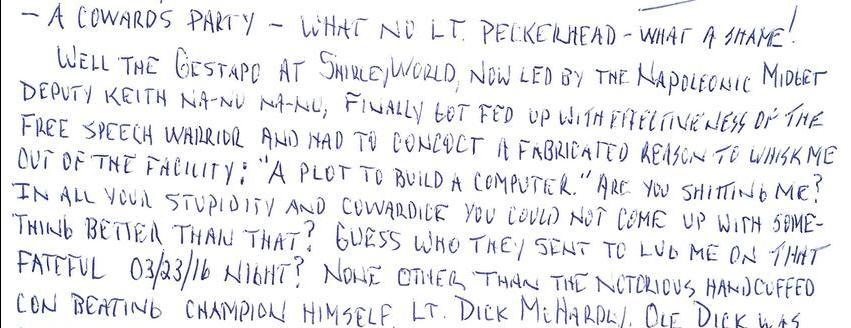 - A COWARDS PARTY - WHAT NO LT. PECKERHEAD - WHAT A SHAME!
WELL THE GESTAPO AT SHIRLEYWORLD, NOW LED BY THE NAPOLEONIC MIDGET
DEPUTY KEITH NA-NU NA-NU, FINALLY GOT FED UP WITH EFFECTIVENESS OF THE
FREE SPEECH WARRIOR AND HAD TO CONCOCT A FABRICATED REASON TO WHISK ME
OUT OF THE FACILITY: "A PLOT TO BUILD A COMPUTER." ARE YOU SHITTING ME?
IN ALL YOUR STUPIDITY AND COWARDICE YOU COULD NOT COME UP WITH SOME-
THING BETTER THAN THAT? GUESS WHO THEY SENT TO LUG ME ON THAT
FATEFUL 03/23/16 NIGHT? NONE OTHER THAN THE NOTORIOUS HANDCUFFED
CON BEATING CHAMPION HIMSELF, LT. DICK McHARDLY. OLE DICK WAS